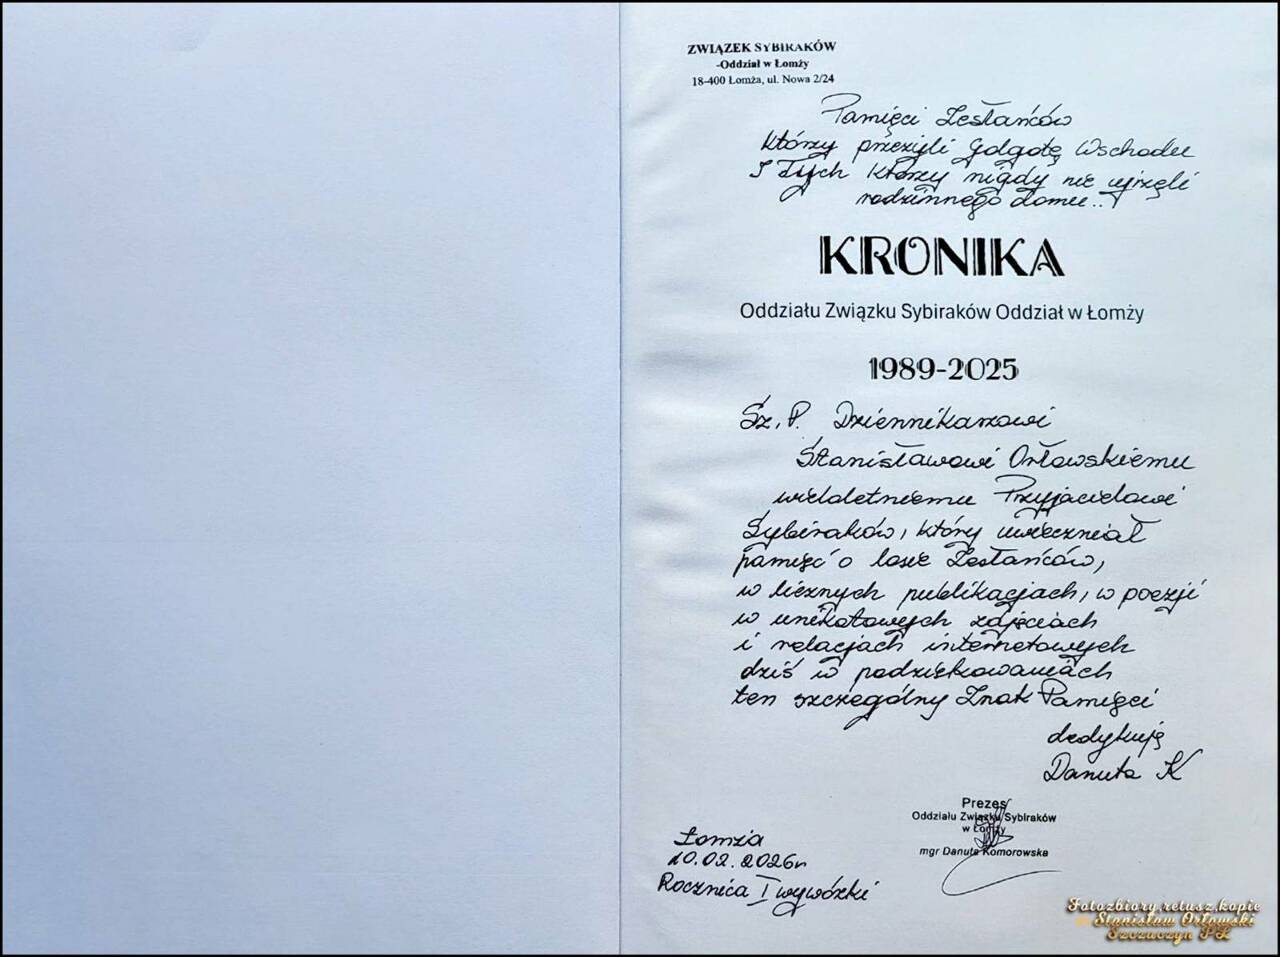 ZWIĄZEK SYBIRAKÓW
-Oddział w Łomży
18-400 Łomża, ul. Nowa 2/24
Pamięci Zesłańców
którzy przeżyli Golgotę Wschodu
I Tych którzy nigdy nie ujrzeli
rodzinnego domu..
KRONIKA
Oddziału Związku Sybiraków Oddział w Łomży
1989-2025
Sz. P. Dziennikarzowi
Stanisławowi Orłowskiemu
wieloletniemu Przyjacielowi
Sybiraków, który uwieczniał
pamięć o losie Zesłańców,
w licznych publikacjach, w poezji
w unikatowych zdjęciach
i relacjach internetowych
dziś w podziękowaniach
ten szczególny Znak Pamięci
dedykuję
Danuta K
Prezes
Oddziału Związku Sybiraków
w Łomży
mgr Danuta Komorowska
Łomża
10.02.2026r
Rocznica I wywózki
Fotozbiory,retusz,kopie
Stanisław Orłowski
Szczuczyn PL